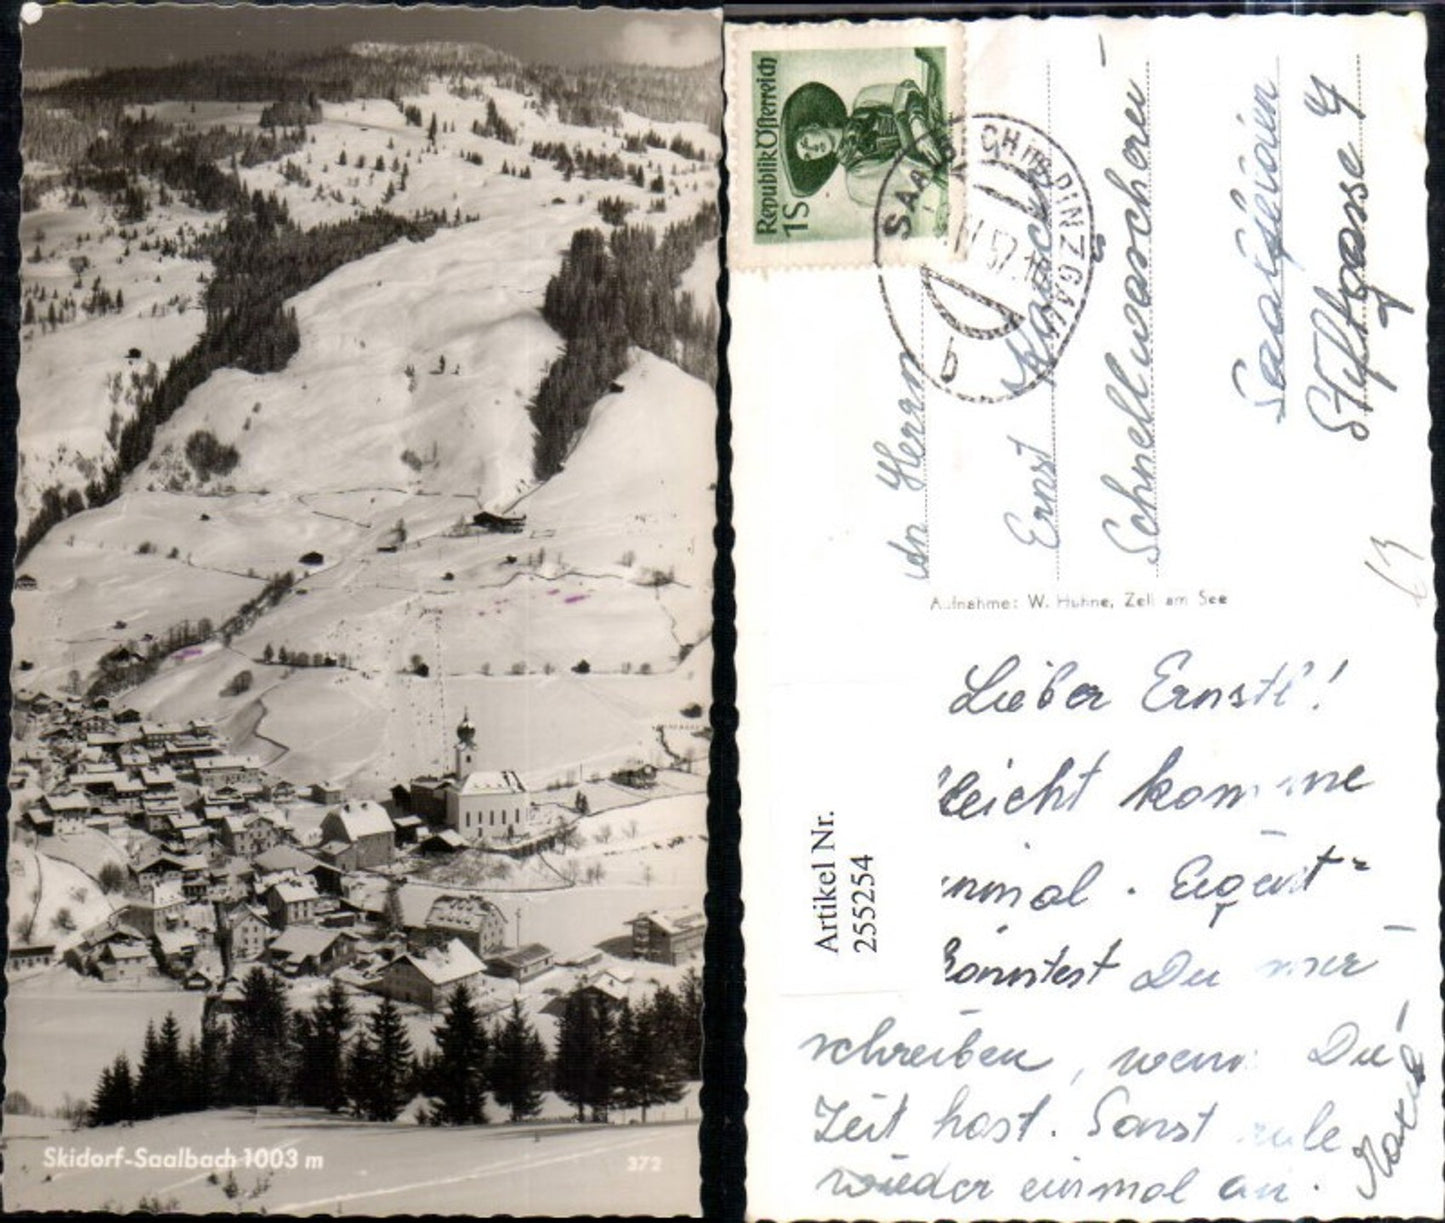 Skidorf-Saalbach 1003 m
372
Republik Österreich
1S
SAALBACH im PINZGAU
57.
b
An Herrn
Ernst
Schnellwascherei
Saalfelden
Stiftgasse 4
Aufnahme: W. Huhne, Zell am See
63
Artikel Nr.
255254
Lieber Ernstl!
leicht komme
einmal. Event-
könntest Du mir
schreiben, wenn Du
Zeit hast. Sonst rufe
wieder einmal an.